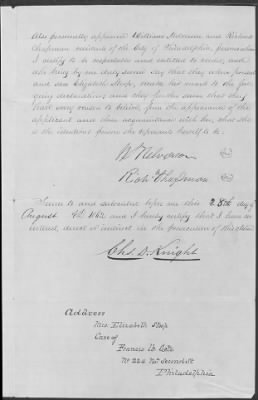 Also personally appeared William Nelverson and Richard
Chapman residents of the City of Philadelphia, persons whom
I certify to be respectable and entitled to credit, and
who being by me duly sworn say that they were present
and saw Elizabeth Shop, make her mark to the fore
going declaration; and they further swear that they
have every reason to believe, from the appearance of the
applicant and their acquaintance with her, that she
is the identical person she represents herself to be.
Wm Nelverson
Richd Chapman
Sworn to and subscribed before me this 28th day of
August A.D. 1862 and I hereby certify that I have no
interest, direct or indirect in the prosecution of this claim
Chs. D. Knight
Address
Mrs. Elizabeth Shop
Case of
Francis
No 224
Philadelphia